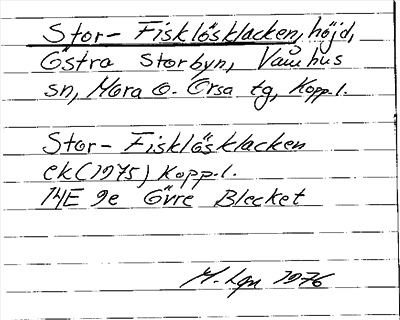 Stor- Fisklösklacken, höjd,
Östra Storbyn, Våmhus
sn, Mora o. Orsa tg, Kopp.l.
Stor- Fisklösklacken
ek (1975) Kopp.l.
14E 9e Övre Blecket
M. Lgn 1976